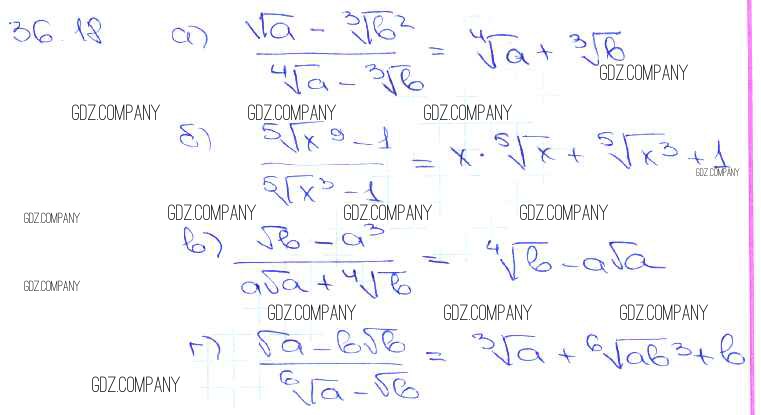 36.18 а) (√a - ∛b²) / (⁴√a - ∛b) = ⁴√a + ∛b
GDZ.COMPANY
GDZ.COMPANY GDZ.COMPANY GDZ.COMPANY
б) (⁵√x⁹ - 1) / (⁵√x³ - 1) = x · ⁵√x + ⁵√x³ + 1
GDZ.COMPANY
GDZ.COMPANY GDZ.COMPANY GDZ.COMPANY GDZ.COMPANY
в) (√b - a³) / (a√a + ⁴√b) = ⁴√b - a√a
GDZ.COMPANY
GDZ.COMPANY GDZ.COMPANY GDZ.COMPANY
г) (√a - b√b) / (⁶√a - √b) = ∛a + ⁶√ab³ + b
GDZ.COMPANY